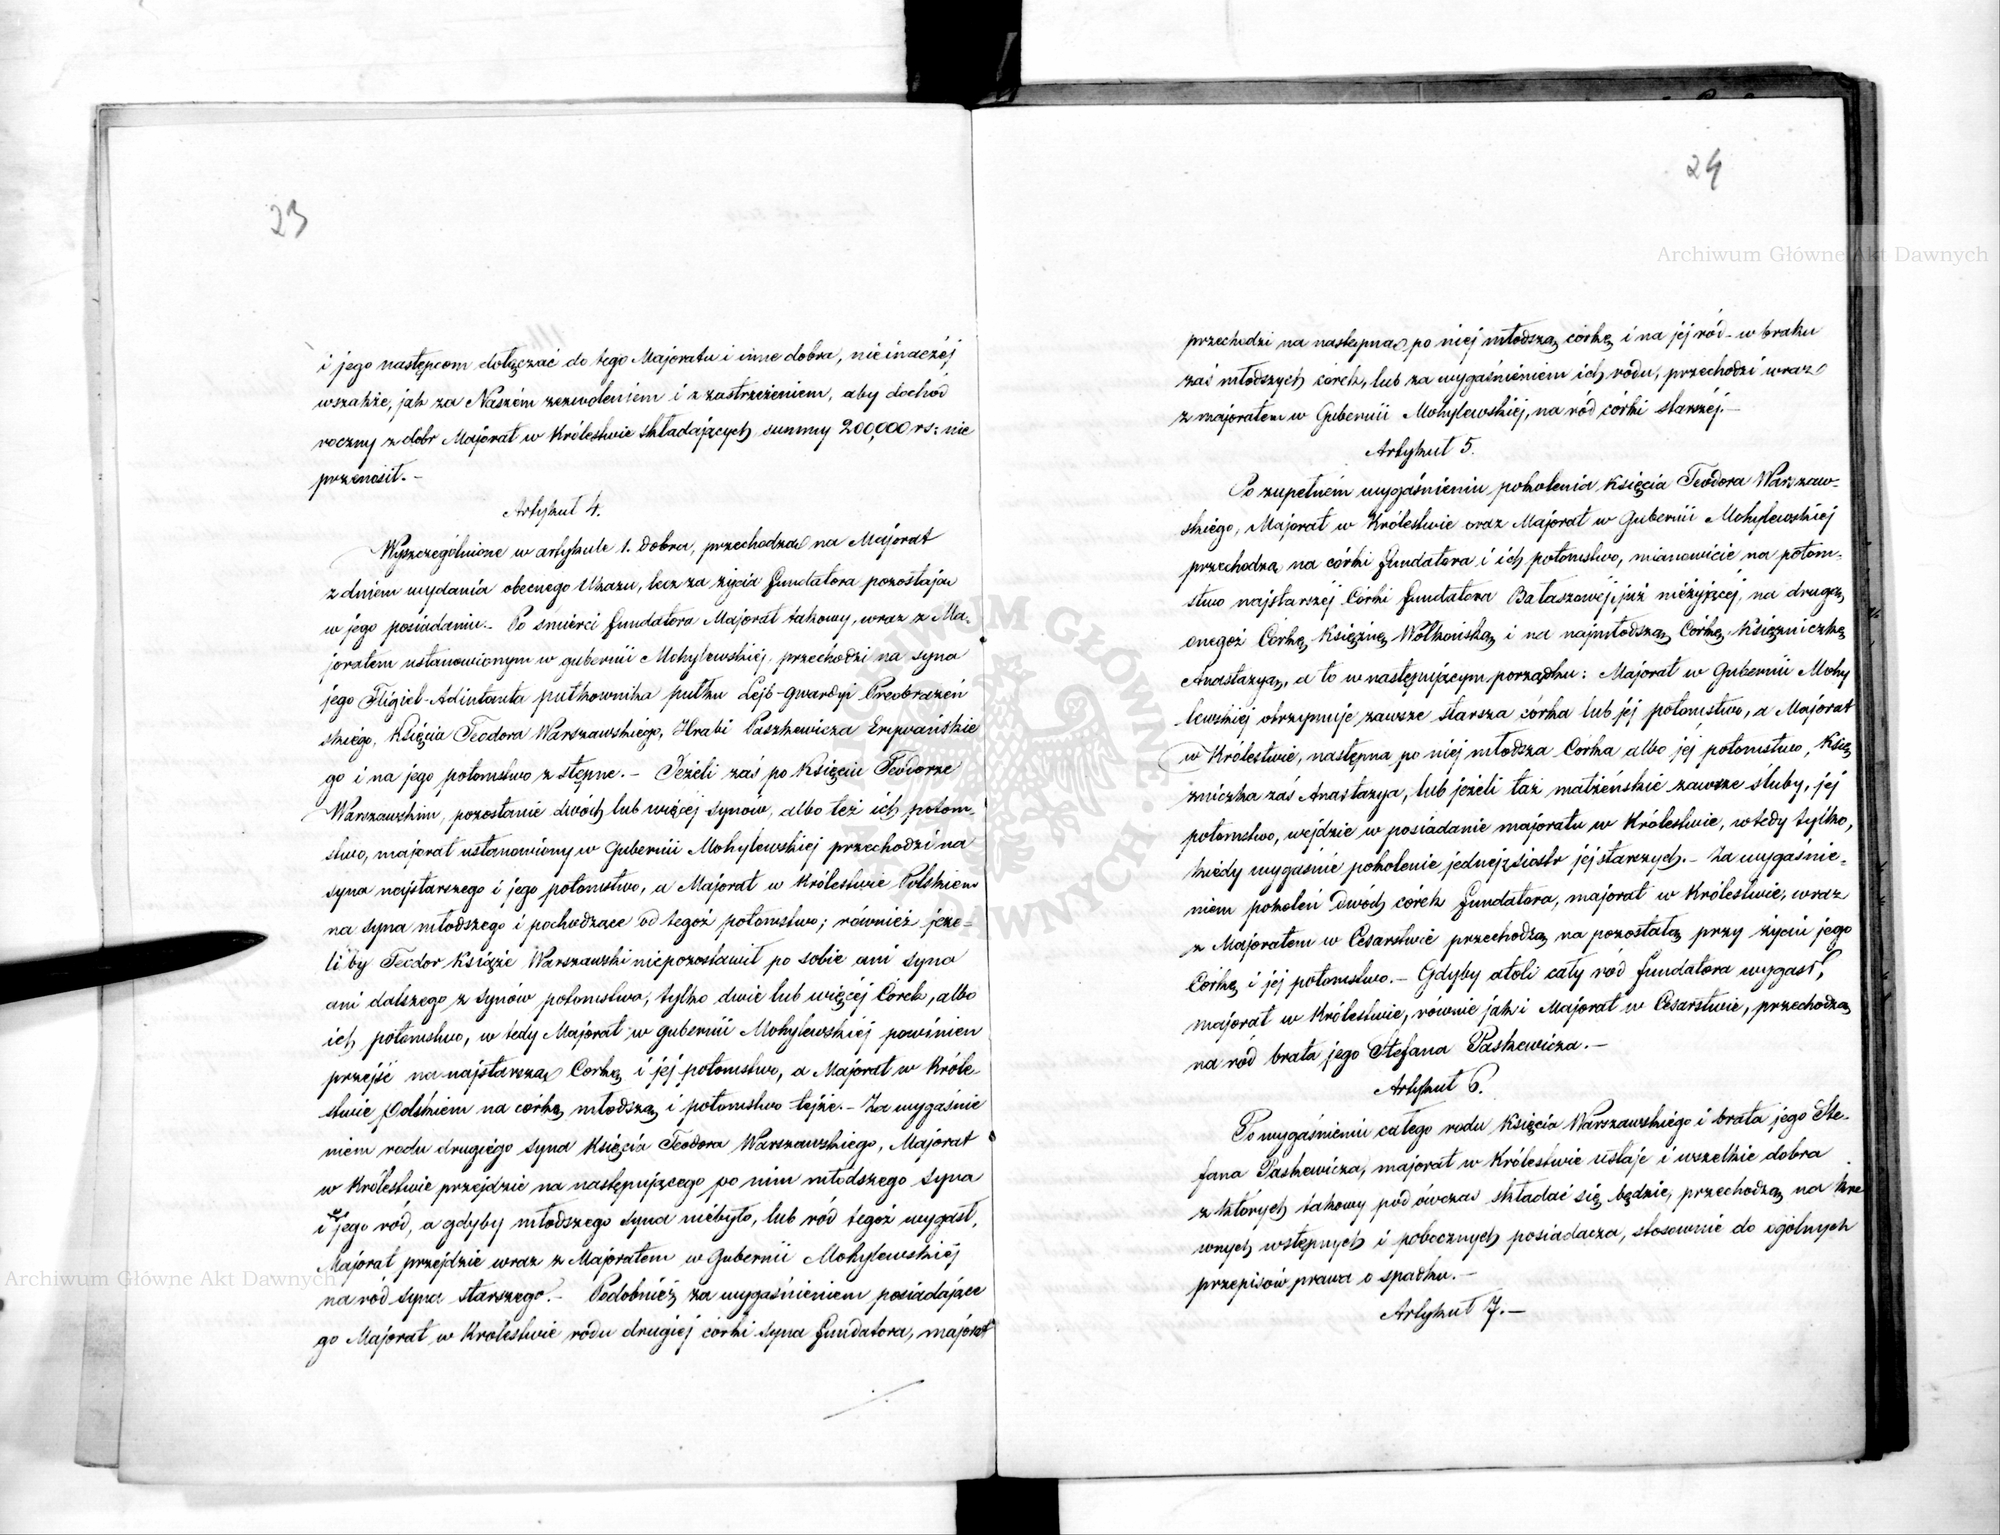 23
i jego następcom dołączać do tego Majoratu i inne dobra, nie inaczéj
wszakże, jak za Naszém zezwoleniem i z zastrzeżeniem, aby dochod
roczny z dobr Majorat w Królestwie składających summy 200,000 rs: nie
przenosił. –
Artykuł 4.
Wyszczególnione w artykule 1. dobra, przechodzą na Majorat
z dniem wydania obecnego Ukazu, lecz za życia fundatora pozostają
w jego posiadaniu. – Po śmierci fundatora Majorat takowy, wraz z Ma-
joratem ustanowionym w gubernii Mohylewskiéj, przechodzi na syna
jego Fligiel-Adiutanta pułkownika pułku Lejb-gwardyi Preobrażeń
skiego, Księcia Teodora Warszawskiego, Hrabi Paszkewicza Erywańskie
go i na jego potomstwo z stępne. – Jeżeli zaś po Księciu Teodorze
Warszawskim, pozostanie dwóch lub więcéj synów, albo też ich potom-
stwo, majorat ustanowiony w Gubernii Mohylewskiéj przechodzi na
syna najstarszego i jego potomstwo, a Majorat w Królestwie Polskiem
na syna młodszego i pochodzące od tegoż potomstwo; również jeże-
liby Teodor Książe Warszawski niepozostawił po sobie ani syna
ani dalszego z synów potomstwa, tylko dwie lub więcéj Corek, albo
ich potomstwo, w tedy Majorat w gubernii Mohylewskiéj powinien
przejść na najstarszą Corkę i jéj potomstwo, a Majorat w Króle-
stwie Polskiem na córkę młodszą i potomstwo tejże. – Za wygaśnie
niem rodu drugiego syna Księcia Teodora Warszawskiego, Majorat
w Królestwie przejdzie na następującego po nim młodszego syna
i jego ród, a gdyby młodszego syna niebyło, lub ród tegoż wygasł,
Majorat przejdzie wraz z Majoratem w Gubernii Mohylewskiéj
na ród syna starszego. – Podobnież za wygaśnieniem posiadające
go Majorat w Krolestwie rodu drugiej corki syna fundatora, majorat
24
przechodzi na następną po niej młodszą córkę i na jej ród – w braku
zaś młodszych córek, lub za wygaśnieniem ich rodu, przechodzi wraz
z majoratem w Gubernii Mohylewskiéj, na ród córki starszéj. –
Artykuł 5.
Po zupełném wygaśnieniu pokolenia Księcia Teodora Warszaw-
skiego, Majorat w Królestwie oraz Majorat w Gubernii Mohylewskiéj
przechodzą na córki fundatora i ich potomstwo, mianowicie na potom-
stwo najstarszéj Córki fundatora Bałaszowéj, już nieżyjącéj, na drugą
onegoż Corkę, Księżnę Wołkońską i na najmłodszą Córkę, Księżniczkę
Anastazyą, a to w następującym porządku: Majorat w Gubernii Mohy
lewskiéj otrzymuje zawsze starsza córka lub jej potomstwo, a Majorat
w Królestwie, następna po niej młodsza Córka albo jej potomstwo, Księ
żniczka zaś Anastazya, lub jeżeli taż małżeńskie zawrze śluby, jéj
potomstwo, wejdzie w posiadanie majoratu w Królestwie, wtedy tylko,
kiedy wygaśnie pokolenie jednéj z siostr jéj starszych. – Za wygaśnie-
niem pokoleń dwóch córek fundatora, majorat w Królestwie, wraz
z Majoratem w Cesarstwie przechodzą na pozostałą przy życiu jego
Córkę i jej potomstwo. – Gdyby atoli cały ród fundatora wygasł,
majorat w Królestwie, równie jak i Majorat w Cesarstwie, przechodzą
na ród brata jego Stefana Paskewicza. –
Artykuł 6.
Po wygaśnieniu całego rodu Księcia Warszawskiego i brata jego Ste-
fana Paskewicza, majorat w Królestwie ustaje i wszelkie dobra
z których takowy pod ówczas składać się będzie, przechodzą na kre
wnych wstępnych i pobocznych posiadacza, stosownie do ogólnych
przepisów prawa o spadku. –
Artykuł 7. –
Archiwum Główne Akt Dawnych
Archiwum Główne Akt Dawnych
ARCHIWUM GŁÓWNE AKT DAWNYCH